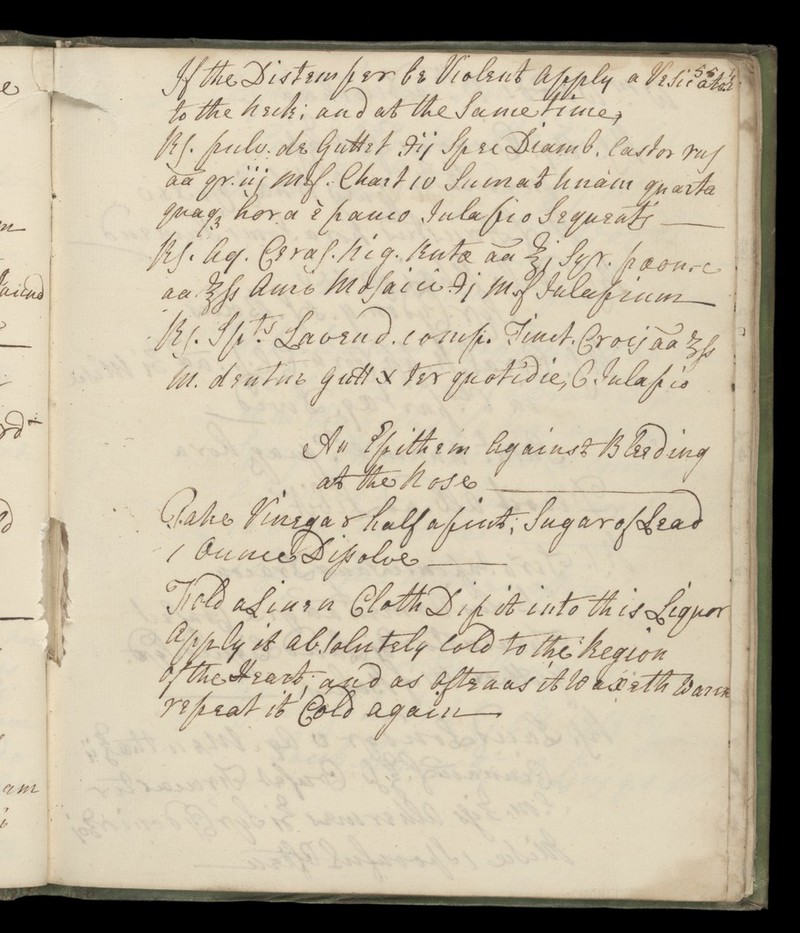 55
If the Distemper be Violent apply a Vesicator
to the neck; and at the Same time,
Rs. pulv. de Guttet ℈ij Spec Diamb. Castor rus
aā gr. iij Ms. Chart iv Sumat unam quarta
quaqȝ hora è pauco Julapio Sequenti
Rs. Aq. Ceras. nig. Rutæ aā ℥j Syr. pæoniæ
aa ℥ſs Auri Mosaici ℈j Mſ Julapium
Rs. Spts Lavend. comp. Tinct. Croci aā ℥ſs
M. dentur gutt x ter quotidie, C Julapio
An Epithem Against Bleeding
at the Nose
Take Vinegar half a pint; Sugar of Lead
1 Ounce Dissolve
Fold a Linen Cloth Dip it into this Liquor
Apply it absolutely cold to the Region
of the Heart; and as often as it Waxeth Warm
repeat it Cold again